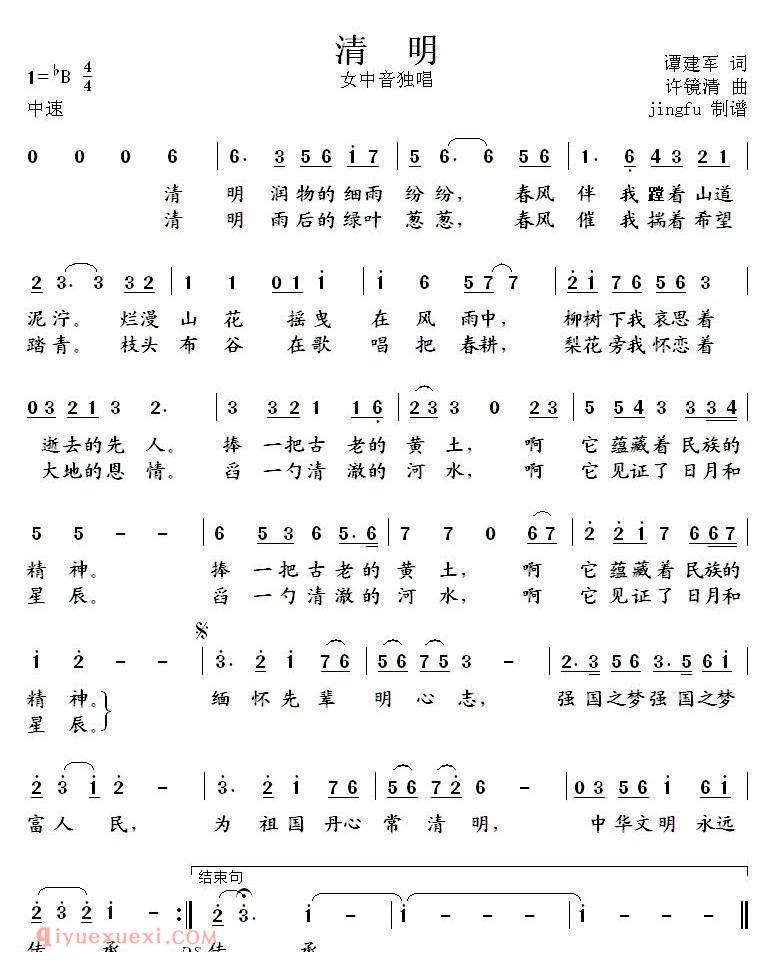 清 明
女中音独唱
1=♭B 4/4
中速
谭建军 词
许镜清 曲
jingfu 制谱
0 0 0 6 | 6. 3 5 6 i 7 | 5 6. 6 5 6 | 1. 6 4 3 2 1 |
清 明 润物的细雨 纷纷， 春风 伴 我 蹚着山道
清 明 雨后的绿叶 葱葱， 春风 催 我 揣着希望
2 3. 3 3 2 | 1 1 0 1 i | i 6 5 7 7 | 2 i 7 6 5 6 3 |
泥泞。 烂漫 山 花 摇曳 在 风 雨中， 柳树下我哀思着
踏青。 枝头 布 谷 在歌 唱 把 春耕， 梨花旁我怀恋着
0 3 2 1 3 2. | 3 3 2 1 6 | 2 3 3 0 2 3 | 5 5 4 3 3 3 4 |
逝去的先 人。 捧 一把古 老的 黄 土， 啊 它 蕴藏着民族的
大地的恩 情。 舀 一勺清 澈的 河 水， 啊 它 见证了日月和
5 5 - - | 6 5 3 6 5. 6 | 7 7 0 6 7 | 2 2 i 7 6 6 7 |
精 神。 捧 一把古老的 黄 土， 啊 它 蕴藏着民族的
星 辰。 舀 一勺清澈的 河 水， 啊 它 见证了日月和
i 2 - - | 3. 2 i 7 6 | 5 6 7 5 3 - | 2. 3 5 6 3. 5 6 i |
精 神。 缅 怀先 辈 明 心 志， 强国之梦强国之梦
星 辰。
2 3 i 2 - | 3. 2 i 7 6 | 5 6 7 2 6 - | 0 3 5 6 i 6 i |
富人 民， 为 祖国 丹心 常 清 明， 中华文明 永远
结束句
2 3 2 2 - :‖ 2 3. i - | i - - - | i - - - ‖
传 承 D.S 传 承
qiyuexuexi.com